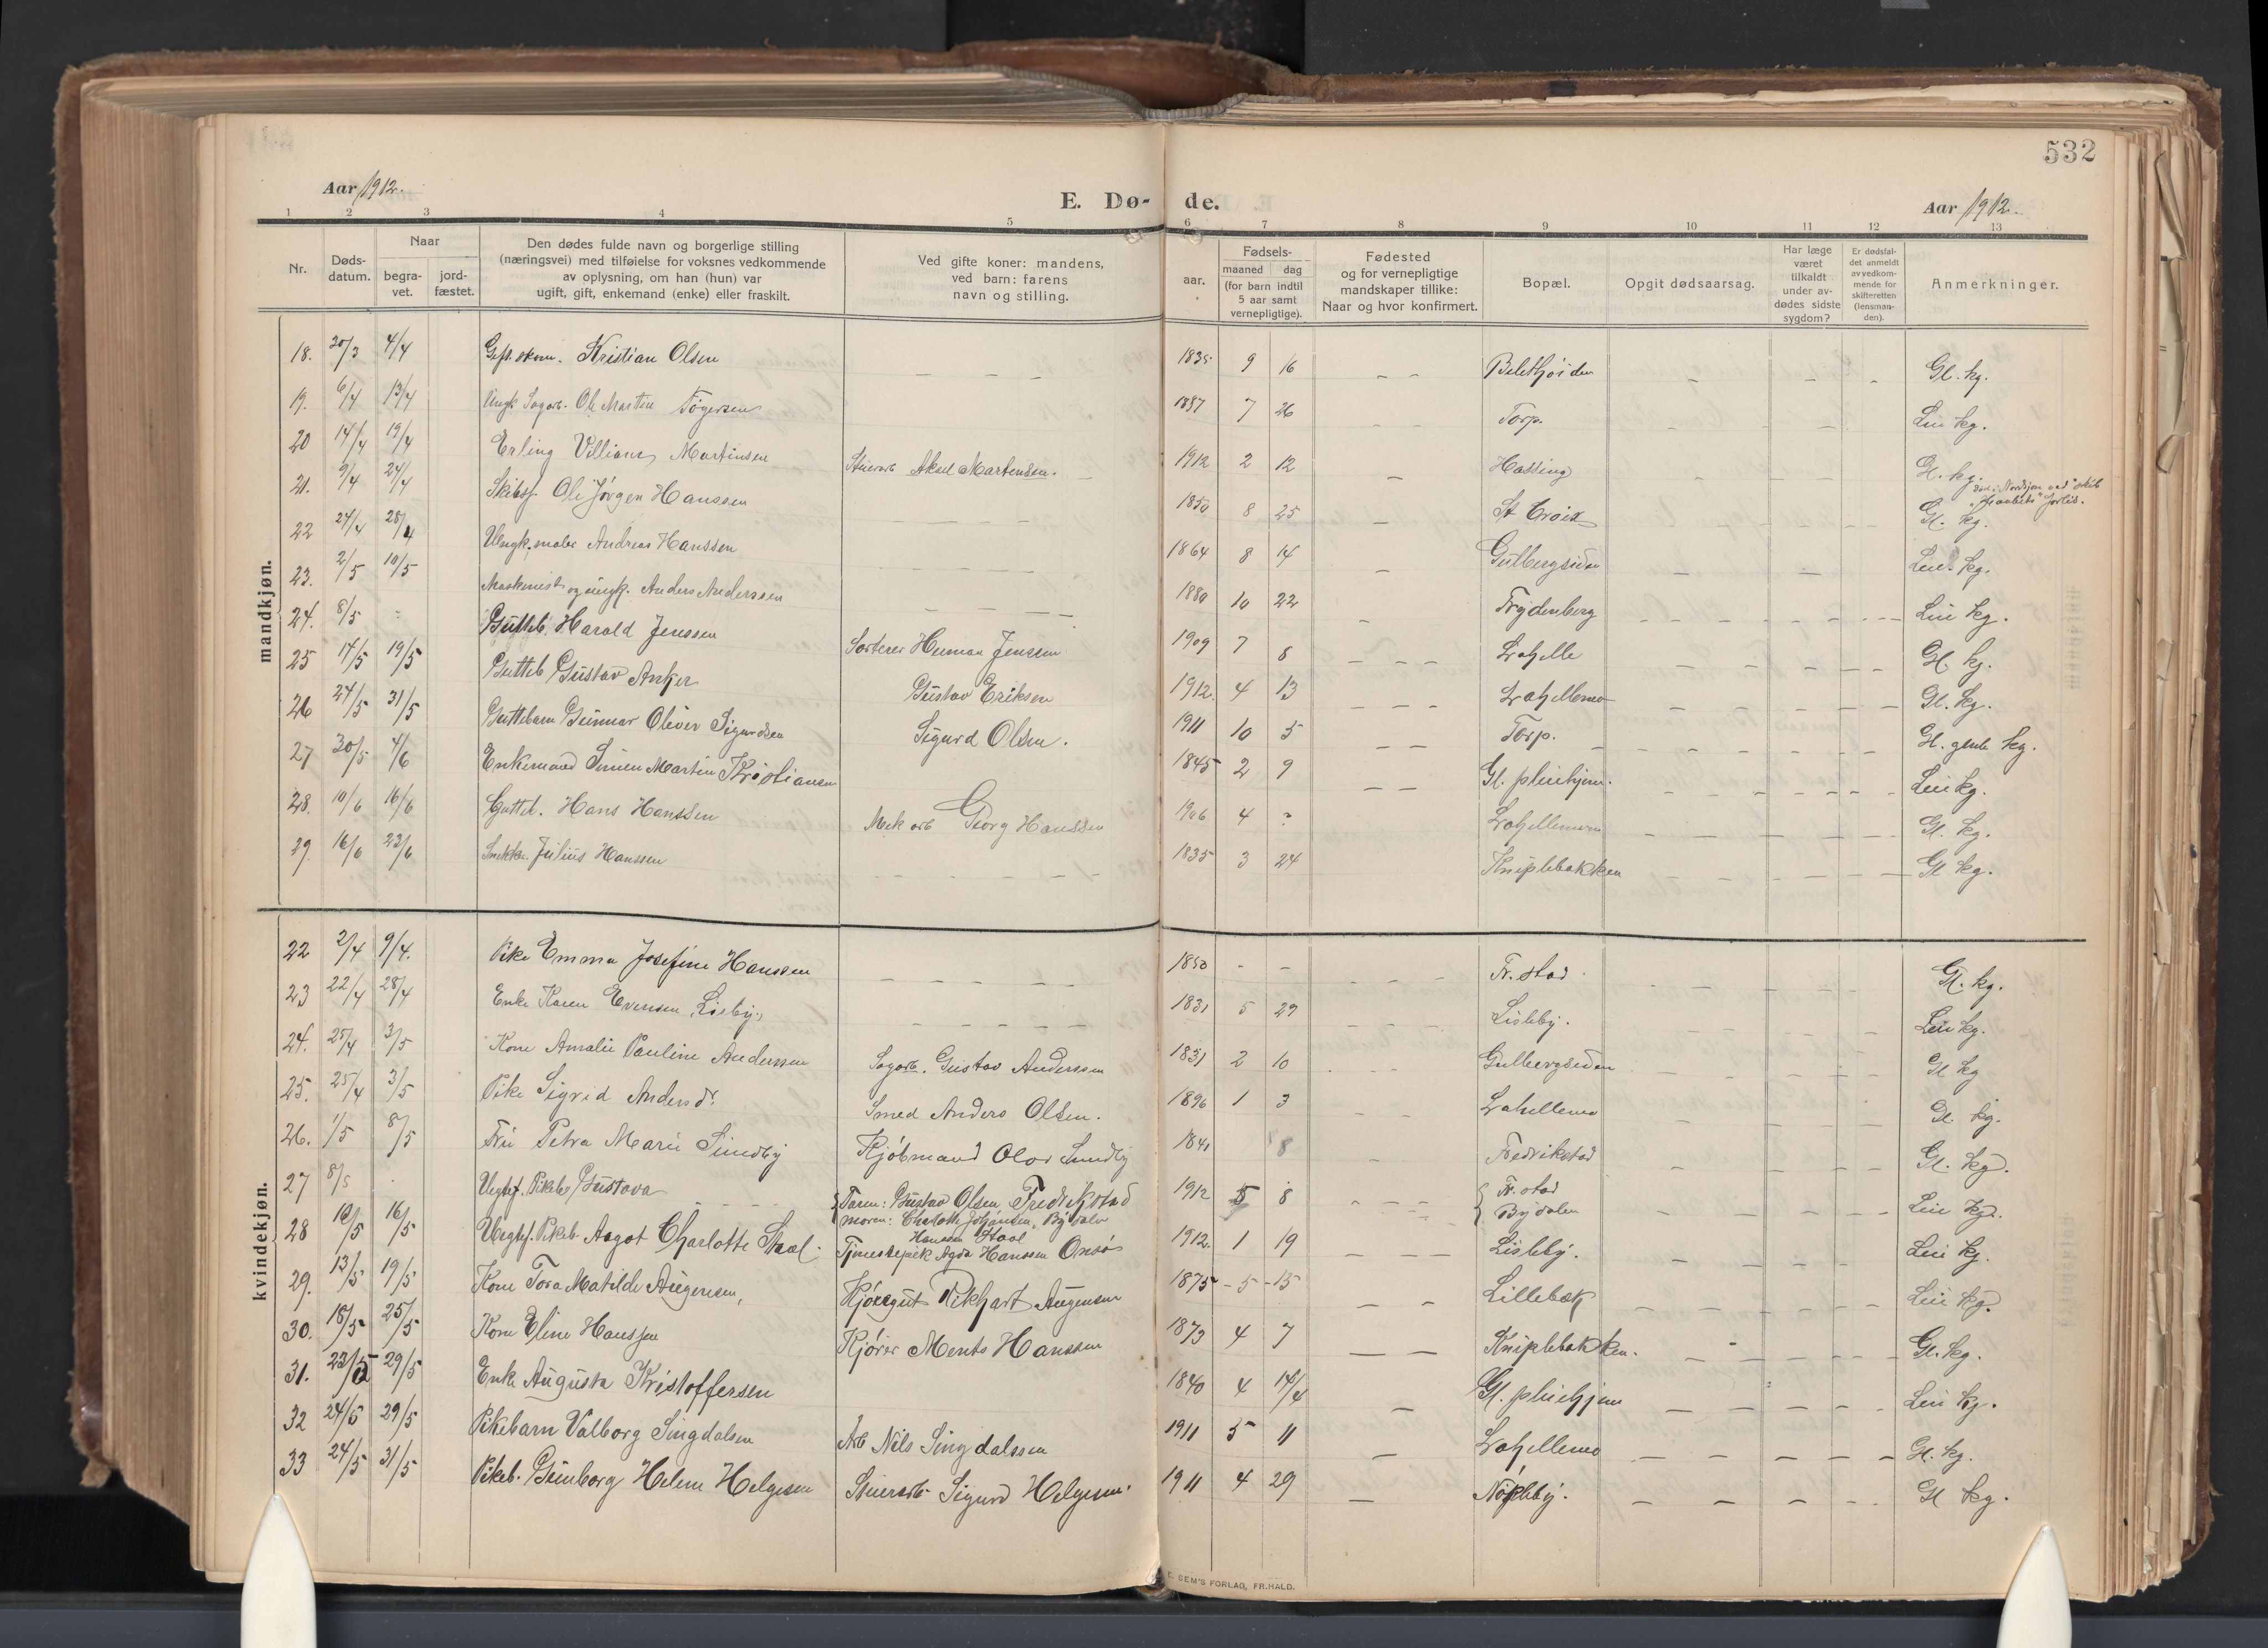 532
Aar 1912.
E. Dø- de.
Aar 1912.
1 2 3 4 5 6 7 8 9 10 11 12 13
Nr.
Døds-
datum.
Naar
begra-
vet.
jord-
fæstet.
Den dødes fulde navn og borgerlige stilling
(næringsvei) med tilføielse for voksnes vedkommende
av oplysning, om han (hun) var
ugift, gift, enkemand (enke) eller fraskilt.
Ved gifte koner: mandens,
ved barn: farens
navn og stilling.
aar.
Fødsels-
maaned dag
(for barn indtil
5 aar samt
vernepligtige).
Fødested
og for vernepligtige
mandskaper tillike:
Naar og hvor konfirmert.
Bopæl.
Opgit dødsaarsag.
Har læge
været
tilkaldt
under av-
dødes sidste
sygdom?
Er dødsfal-
det anmeldt
av vedkom-
mende for
skifteretten
(lensman-
den).
Anmerkninger.
mandkjøn.
18. 4/4 Gift. skom. Kristian Olsen — — — 1835 9 16 — — — — — Gl. kg.
19. 6/4 13/4 Ungk. Sagarb. Ole Martin 7 26 — — Torp. — — Leie kg.
20 14/4 19/4 Erling Martinsen Stuerarb Aksel Martensen. 1912 2 12 — Hassing — — Gl. kg.
21. 9/4 24/4 Skibsf. Ole Jørgen Hanssen — — — — 1850 8 25 — St Croix — — Gl. kg. ved "skib forlis.
22 24/4 28/4 Ungk. maler Andreas Hanssen — — — — 1864 8 14 — Gulbergsiden — — Leie. kg.
23. 2/5 10/5 Maskinist og ungk. Anders Anderssen — — — — 1880 10 22 — Frydenberg — — Leie kg.
24. 8/5 Gutteb. Harald Jenssen Sorterer Herman Jenssen 1909 7 8 — — — Lahelle — — — Gl. kg.
25 17/5 19/5 Gutteb Gustav Anker Gustav Eriksen 1912. 4 13 — — — Lahellemo — — — Gl. kg.
26 24/5 31/5 Guttebarn Gunnar Oliver Sigurdsen Sigurd Olsen. 1911 10 5 — — Torp. — — — Gl. gamle kg.
27 30/5 4/6 Enkemand Simen Martin Kristiansen 1845 2 9 — — Gl. pleiehjem. — — — Leie kg.
28. 10/6 16/6 Gutteb. Hans Hanssen Mek arb Georg Hanssen 1906 4 ? Lahellemoen — — — Gl. kg.
29. 16/6 23/6 Snekker Julius Hanssen — — — — — 1835 3 24 Kniplebakken — — — Gl kg.
kvindekjøn.
22 2/4 9/4. Pike Emma Josefine Hanssen — — — — — 1850 - - Fr.stad — — Gl. kg.
23 22/4 28/4 Enke Karen Evensen, Lisby. — — — — — 1831 5 29 — — — Lisleby. — — — Leie kg.
24. 25/4 3/5 Kone Amalie Pauline Anderssen Sagarb. Gustav Anderssen 2 10 Gulbergsiden — — Gl kg
25. 25/4 3/5 Pike Sigrid Andersd. Smed Anders Olsen. 1896 1 3 — — Lahellemo — — Gl. kg.
26. 1/5 8/5 Fru Petra Marie Sundby Kjøbmand Olav Sundby 1841 8 — Fredrikstad — — Gl. kg.
27 8/5 Uegtef. Pikeb. Gustava — — — Faren: Gustav Olsen, Fredrikstad 1912 5 8 — — — Fr.stad — — — Leie kg.
moren: Charlotte Johansen, Bydalen Bydalen
28 10/5 16/5 Uegtef. Pikeb. Aagot Charlotte Staal. Tjenestepik Agda Hanssen Onsø 1912. 1 19 — — — Lisleby. — — — Leie kg.
Hanssen Staal
29. 13/5 19/5 Kone Tora Matilde Augensen, Kjøregut Rikhart Augensen 1875 - 5 - 15 — — Lillebæk — — — Leie kg.
30. 18/5 25/5 Kone Eline Hanssen Kjører Ments Hanssen 1873 4 7 — — Kniplebakken. — — — Gl. kg.
31. 23/5 29/5 Enke Augusta Kristoffersen 1840 4 14/4 — Gl. pleiehjem — — — Leie kg.
32 24/5 29/5 Pikebarn Valborg Singdalsen Arb Nils Singdalssen 1911 5 11 — Lahellemo — — — Gl. kg.
33 24/5 31/5 Pikeb. Gunborg Helene Helgesen Stuerarb. Sigurd Helgesen. 1911 4 29 — Nøkleby. — — — Gl kg.
E. SEM'S FORLAG, FR.HALD.